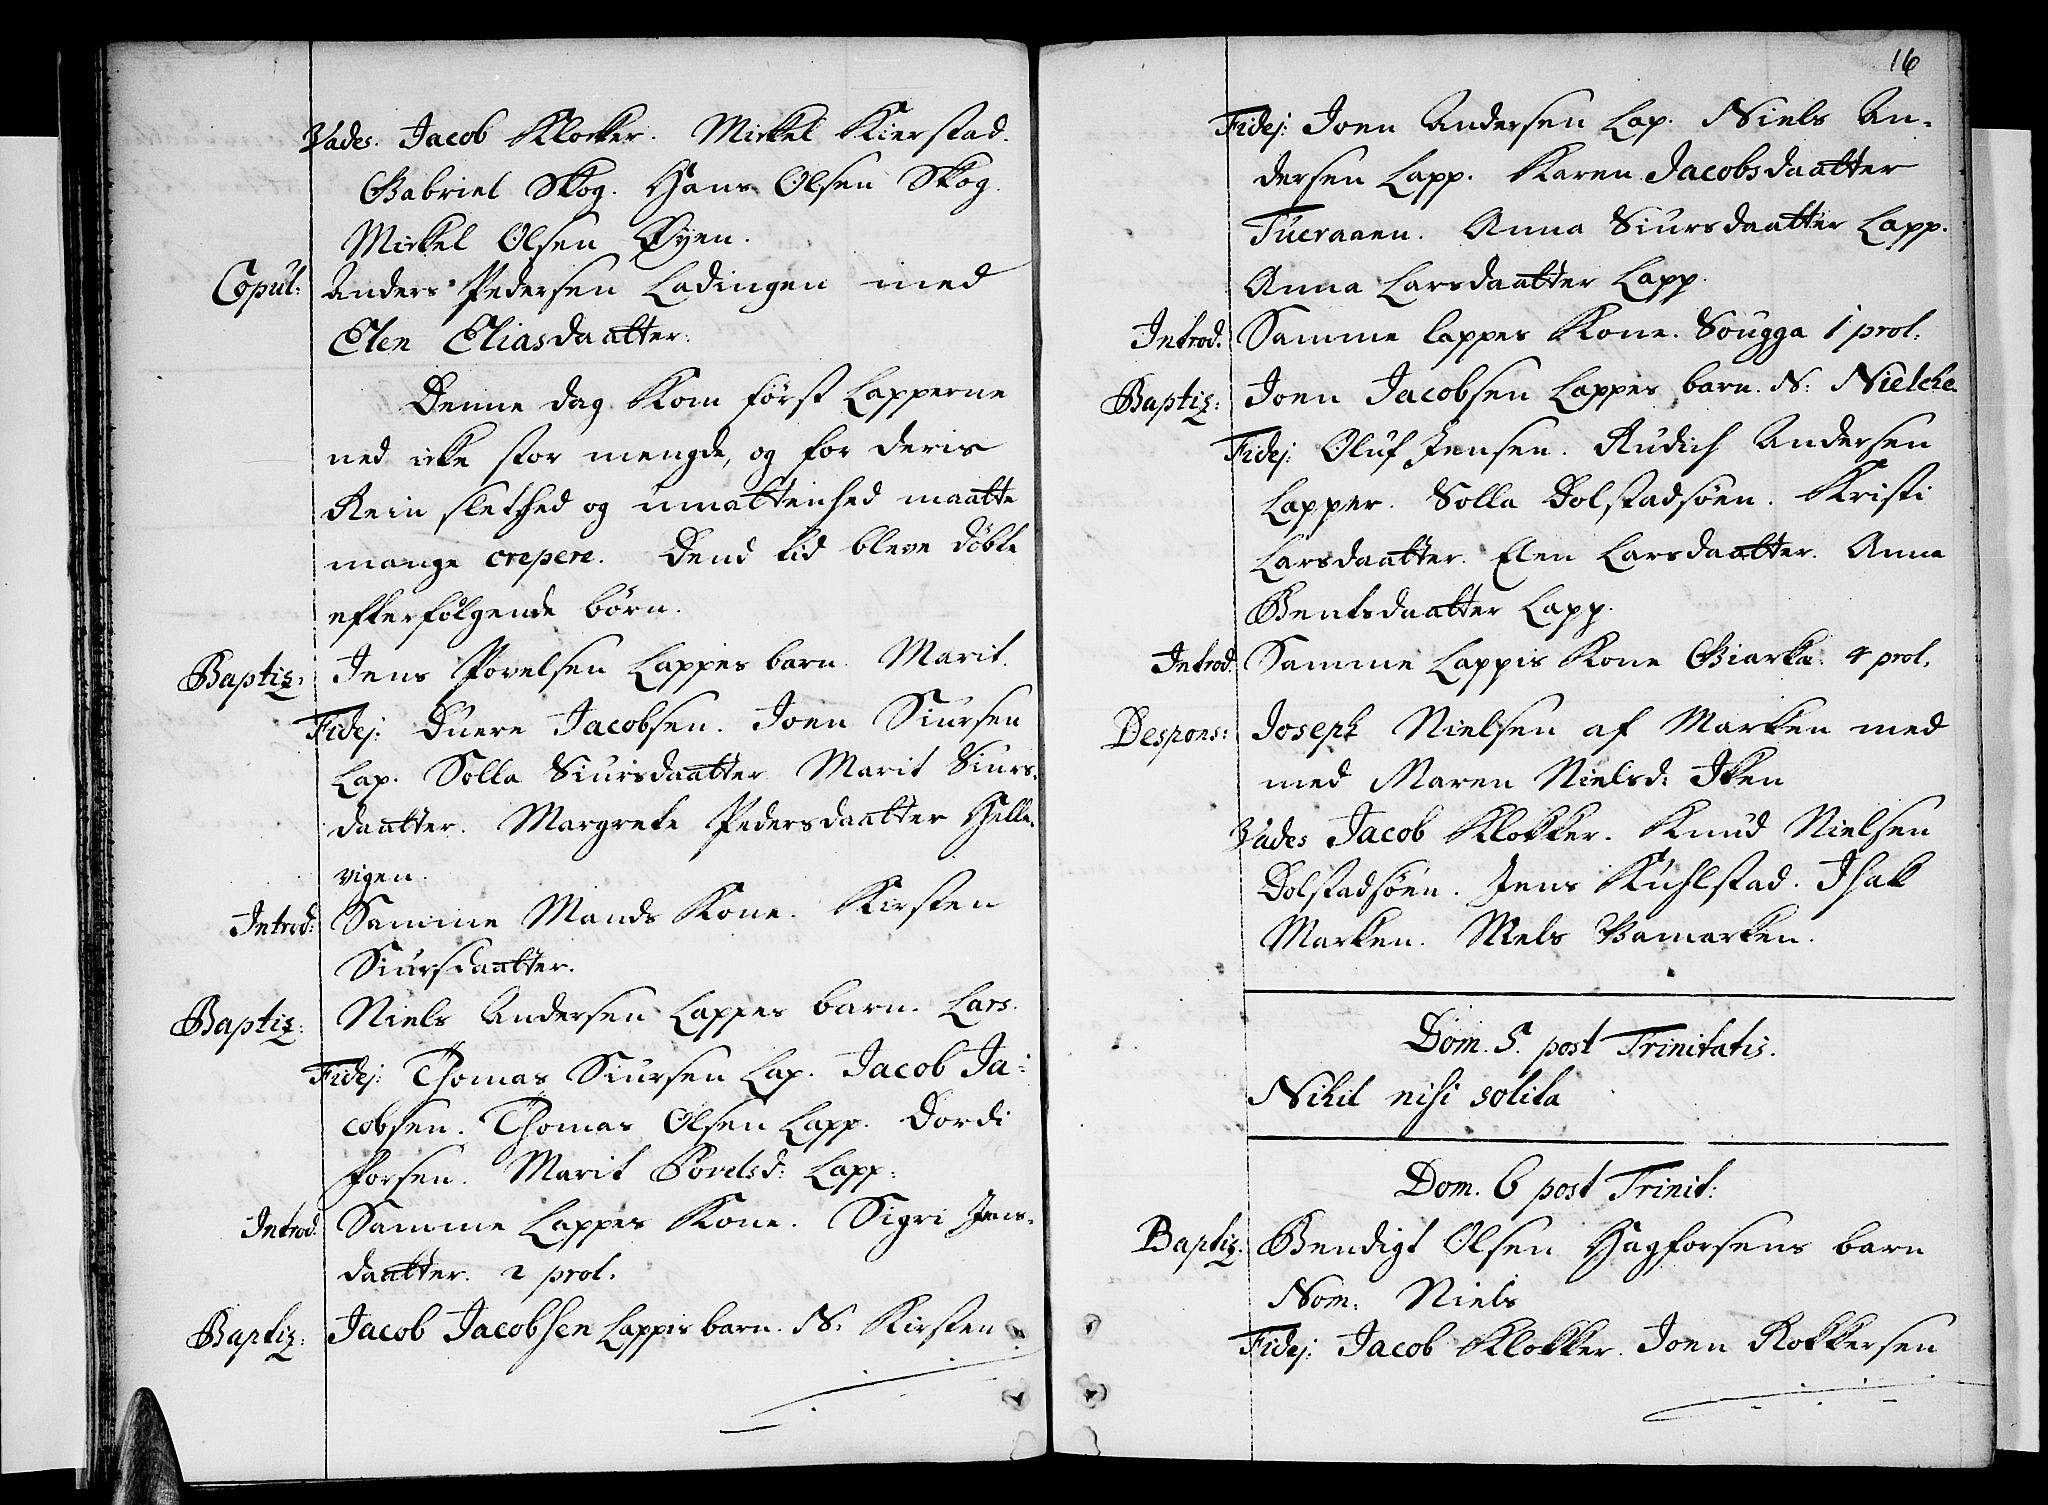 Vades. Jacob Klocker. Mickel Kierstad.
Gabriel Skog. Hans Olsen Skog.
Mickel Olsen Øyen.
Copul: Anders Pedersen Ladingen med
Elen Eliasdaatter.
Denne dag kom først Lapperne
ned icke stor mengde, og for deris
Rein slethed og umattenhed maatte
mange crepere. Dend tid bleve døbte
efterfølgende børn.
Baptiz: Jens Povelsen Lappes barn. Marit.
Fidej: Duere Jacobsen. Joen Siursen
Lap. Solla Siursdaatter Marit Siurs-
daatter. Margrete Pedersdaatter Helle-
vigen.
Introd: Samme Mands Kone. Kirsten
Siursdaatter.
Baptiz: Niels Andersen Lappes barn. Lars.
Fidej: Thomas Siursen Lap. Jacob Ja-
cobsen. Thomas Olsen Lapp. Dordi
Forsen. Marit Povelsd: Lapp:
Introd. Samme Lappes Kone. Sigri Jens-
daatter. 2 prol.
Baptiz: Jacob Jacobsen Lappis barn. N: Kirsten
16
Fidej: Joen Andersen Lap. Niels An-
dersen Lapp. Karen Jacobsdaatter
Tueraaen. Anna Siursdaatter Lapp.
Anna Larsdaatter Lapp.
Introd. Samme Lappes Kone. Sougga 1 prol.
Baptiz: Joen Jacobsen Lappes barn. N: Nielche.
Fidej: Oluf Jensen. Rudich Andersen
Lapper. Solla Dolstadsøen. Kristi
Larsdaatter. Elen Larsdaatter. Anne
Bentsdaatter Lapp.
Introd. Samme Lappis Kone Biarka. 4 prol.
Despons: Joseph Nielsen af Marken med
med Maren Nielsd: Iken
Vades Jacob Klokker. Knud Nielsen
Dolstadsøen. Jens Kuhlstad. Isak
Marken. Niels Bamarken.
Dom. 5. post Trinitatis.
Nihil nisi solita
Dom. 6 post Trinit:
Baptiz: Bendigt Olsen Hagforsens barn
Nom. Niels
Fidej: Jacob Klokker. Joen Rokkersen